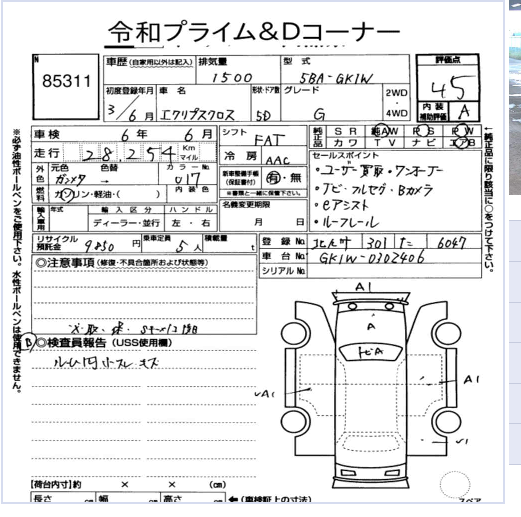 令和プライム&Dコーナー
№
85311
車歴 (自家用以外は記入)
排気量
1500
型式
5BA-GK1W
評価点
4.5
初度登録年月
3/6月
車名
エクリプスクロス
形状・ドア数
5D
グレード
G
2WD
・
4WD
内装
補助評価
A
車検
6年 6月
シフト
FAT
純正品
SR
AW
PS
PW
カワ
TV
ナビ
走行
28,254
Km
マイル
冷房
AAC
セールスポイント
・ユーザー買取・ワンオーナー
・ナビ・フルセグ・Bカメラ
・eアシスト
・ルーフレール
外色
元色
ガンメタ
色替
→
カラーNo
U17
燃料
ガソリン・軽油・( )
内装色
新車整備手帳
(保証書付)
有・無
※書類と一緒に保管下さい。
輸入車用
年式
輸入区分
ディーラー・並行
ハンドル
左・右
名義変更期限
月 日
リサイクル
預託金
円
乗車定員
5人
積載量
t
登録No
301
6047
車台No
GK1W-0302406
シリアルNo
◎注意事項 (修復・不具合箇所および状態等)
◎検査員報告 (USS使用欄)
A1
A
A1
A1
【荷台内寸】約 × × (cm)
長さ
cm
幅
cm
高さ
cm
←(車検証上の寸法)
スペア
※必ず油性ボールペンをご使用下さい。水性ボールペンは使用できません。
←純正品に限り該当に○をつけて下さい。